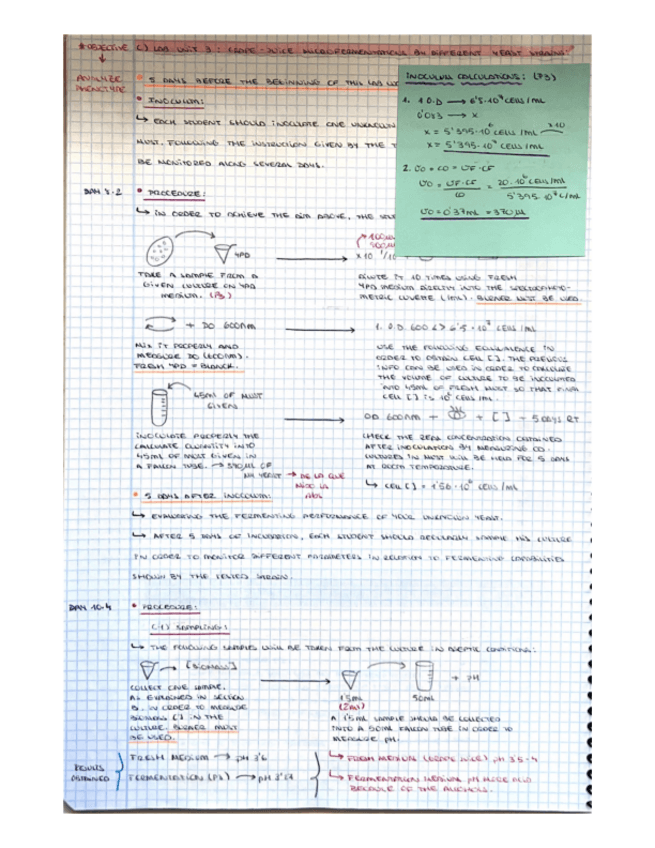 * OBJECTIVE
C) LAB UNIT 3: GRAPE-JUICE MICROFERMENTATIONS BY DIFFERENT YEAST STRAINS.
ANALYZE
PHENOTYPE
5 DAYS BEFORE THE BEGINNING OF THIS LAB
INOCULUM CALCULATIONS: (P3)
1. 1 O.D → 6'5·10⁶ CELLS/ML
0'083 → X
X = 5'395·10 CELLS/ML ×10
X = 5'395·10 CELLS/ML
2. VO = CO = VF·CF
VO = VF·CF / CO = 20·10⁶ CELLS/ML / 5'395·10 C/ML
VO = 0'37ML = 370 µL
• INOCULUM:
↳ EACH STUDENT SHOULD INOCULATE ONE UNKNOWN
MUST. FOLLOWING THE INSTRUCTION GIVEN BY THE T
BE MONITORED ALONG SEVERAL DAYS.
• PROCEDURE:
↳ IN ORDER TO ACHIEVE THE AIM ABOVE, THE
YPD
TAKE A SAMPLE FROM A
GIVEN CULTURE ON YPD
MEDIUM. (P3)
DILUTE IT 10 TIMES USING FRESH
YPD MEDIUM DIRECTLY INTO THE SPECTROPHOTO-
METRIC CUVETTE (1ML). BLENDER MUST BE USED.
+ DO 600nm
1. O.D. 600 <> 6'5·10⁶ CELLS/ML
MIX IT PROPERLY AND
MEASURE DO (600nm).
FRESH YPD = BLANCK.
USE THE FOLLOWING EQUIVALENCE IN
ORDER TO OBTAIN CELL []. THE PREVIOUS
INFO CAN BE USED IN ORDER TO CALCULATE
THE VOLUME OF CULTURE TO BE INOCULATED
INTO 45ML OF FRESH MUST SO THAT FINAL
CELL [] IS 10⁶ CELLS/ML.
45ML OF MUST
GIVEN
OD 600nm + + [] - 5 DAYS RT
INOCULATE PROPERLY THE
CALCULATE QUANTITY INTO
45ML OF MUST GIVEN IN
A FALCON TUBE. → 370 µL OF
MY YEAST → DE LA QUE
CHECK THE REAL CONCENTRATION OBTAINED
AFTER INOCULATION BY MEASURING OD.
CULTURES IN MUST WILL BE HELD FOR 5 DAYS
AT ROOM TEMPERATURE.
↳ CELL [] = 1'56·10⁶ CELLS/ML
• 5 DAYS AFTER INOCULUM:
↳ EVALUATING THE FERMENTING PERFORMANCE OF YOUR UNKNOWN YEAST.
↳ AFTER 5 DAYS OF INCUBATION, EACH STUDENT SHOULD REGULARLY SAMPLE HIS CULTURE
IN ORDER TO MONITOR DIFFERENT PARAMETERS IN RELATION TO FERMENTING CAPABILITIES
SHOWN BY THE TESTED STRAIN.
DAY 10-4
• PROCEDURE:
C.1) SAMPLING:
↳ THE FOLLOWING SAMPLES WILL BE TAKEN FROM THE CULTURE IN ASEPTIC CONDITIONS:
→ [BIOMASS]
1'5ML
(2ML)
50ML
+ PH
COLLECT ONE SAMPLE,
AS EXPLAINED IN SECTION
B, IN ORDER TO MEASURE
BIOMASS [] IN THE
CULTURE. BLENDER MUST
BE USED.
A 15ML SAMPLE SHOULD BE COLLECTED
INTO A 50ML FALCON TUBE IN ORDER TO
MEASURE PH.
RESULTS
OBTAINED
FRESH MEDIUM → PH 3'6
FERMENTATION (P3) → PH
↳ FRESH MEDIUM (GRAPE JUICE) PH 3'5-4
↳ FERMENTATION MEDIUM PH MORE ACID
BECAUSE OF THE ALCOHOLS.